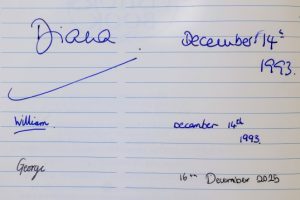 Diana December 14th
1993.
William December 14th
1993.
George 16th December 2025